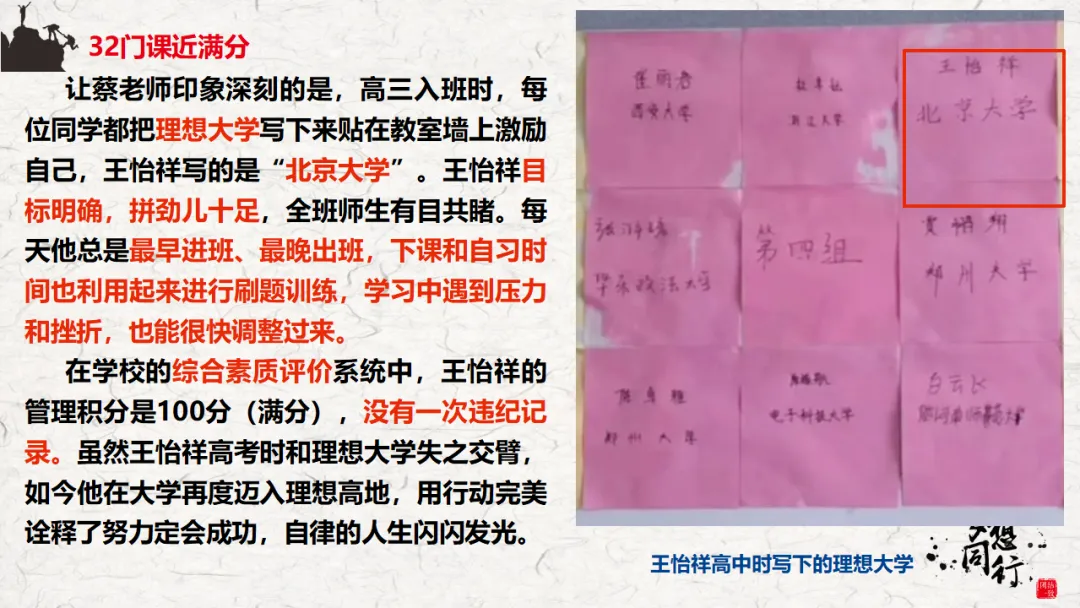 32门课近满分
让蔡老师印象深刻的是，高三入班时，每
位同学都把理想大学写下来贴在教室墙上激励
自己，王怡祥写的是“北京大学”。王怡祥目
标明确，拼劲儿十足，全班师生有目共睹。每
天他总是最早进班、最晚出班，下课和自习时
间也利用起来进行刷题训练，学习中遇到压力
和挫折，也能很快调整过来。
在学校的综合素质评价系统中，王怡祥的
管理积分是100分（满分），没有一次违纪记
录。虽然王怡祥高考时和理想大学失之交臂，
如今他在大学再度迈入理想高地，用行动完美
诠释了努力定会成功，自律的人生闪闪发光。
崔丽君
西安大学
浙江大学
王怡祥
北京大学
华东政法大学
第四组
郑州大学
郑州大学
电子科技大学
白云飞
王怡祥高中时写下的理想大学
想
同行